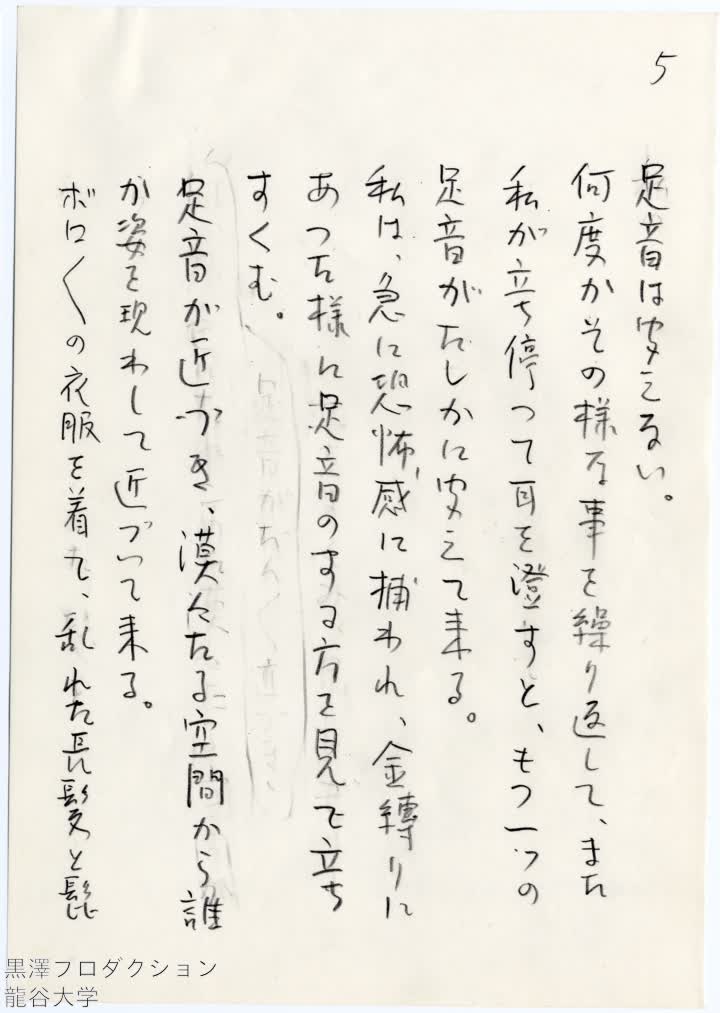 5
足音は聞えない。
何度かその様な事を繰り返して、また
私が立ち停って耳を澄すと、もう一つの
足音がたしかに聞えて来る。
私は、急に恐怖感に捕われ、金縛りに
あった様に足音のする方を見て立ち
すくむ。
足音が近づき、漠々たる空間から誰
か姿を現わして近づいて来る。
ボロ〳〵の衣服を着て、乱れた長髪と髭
黒澤プロダクション
龍谷大学